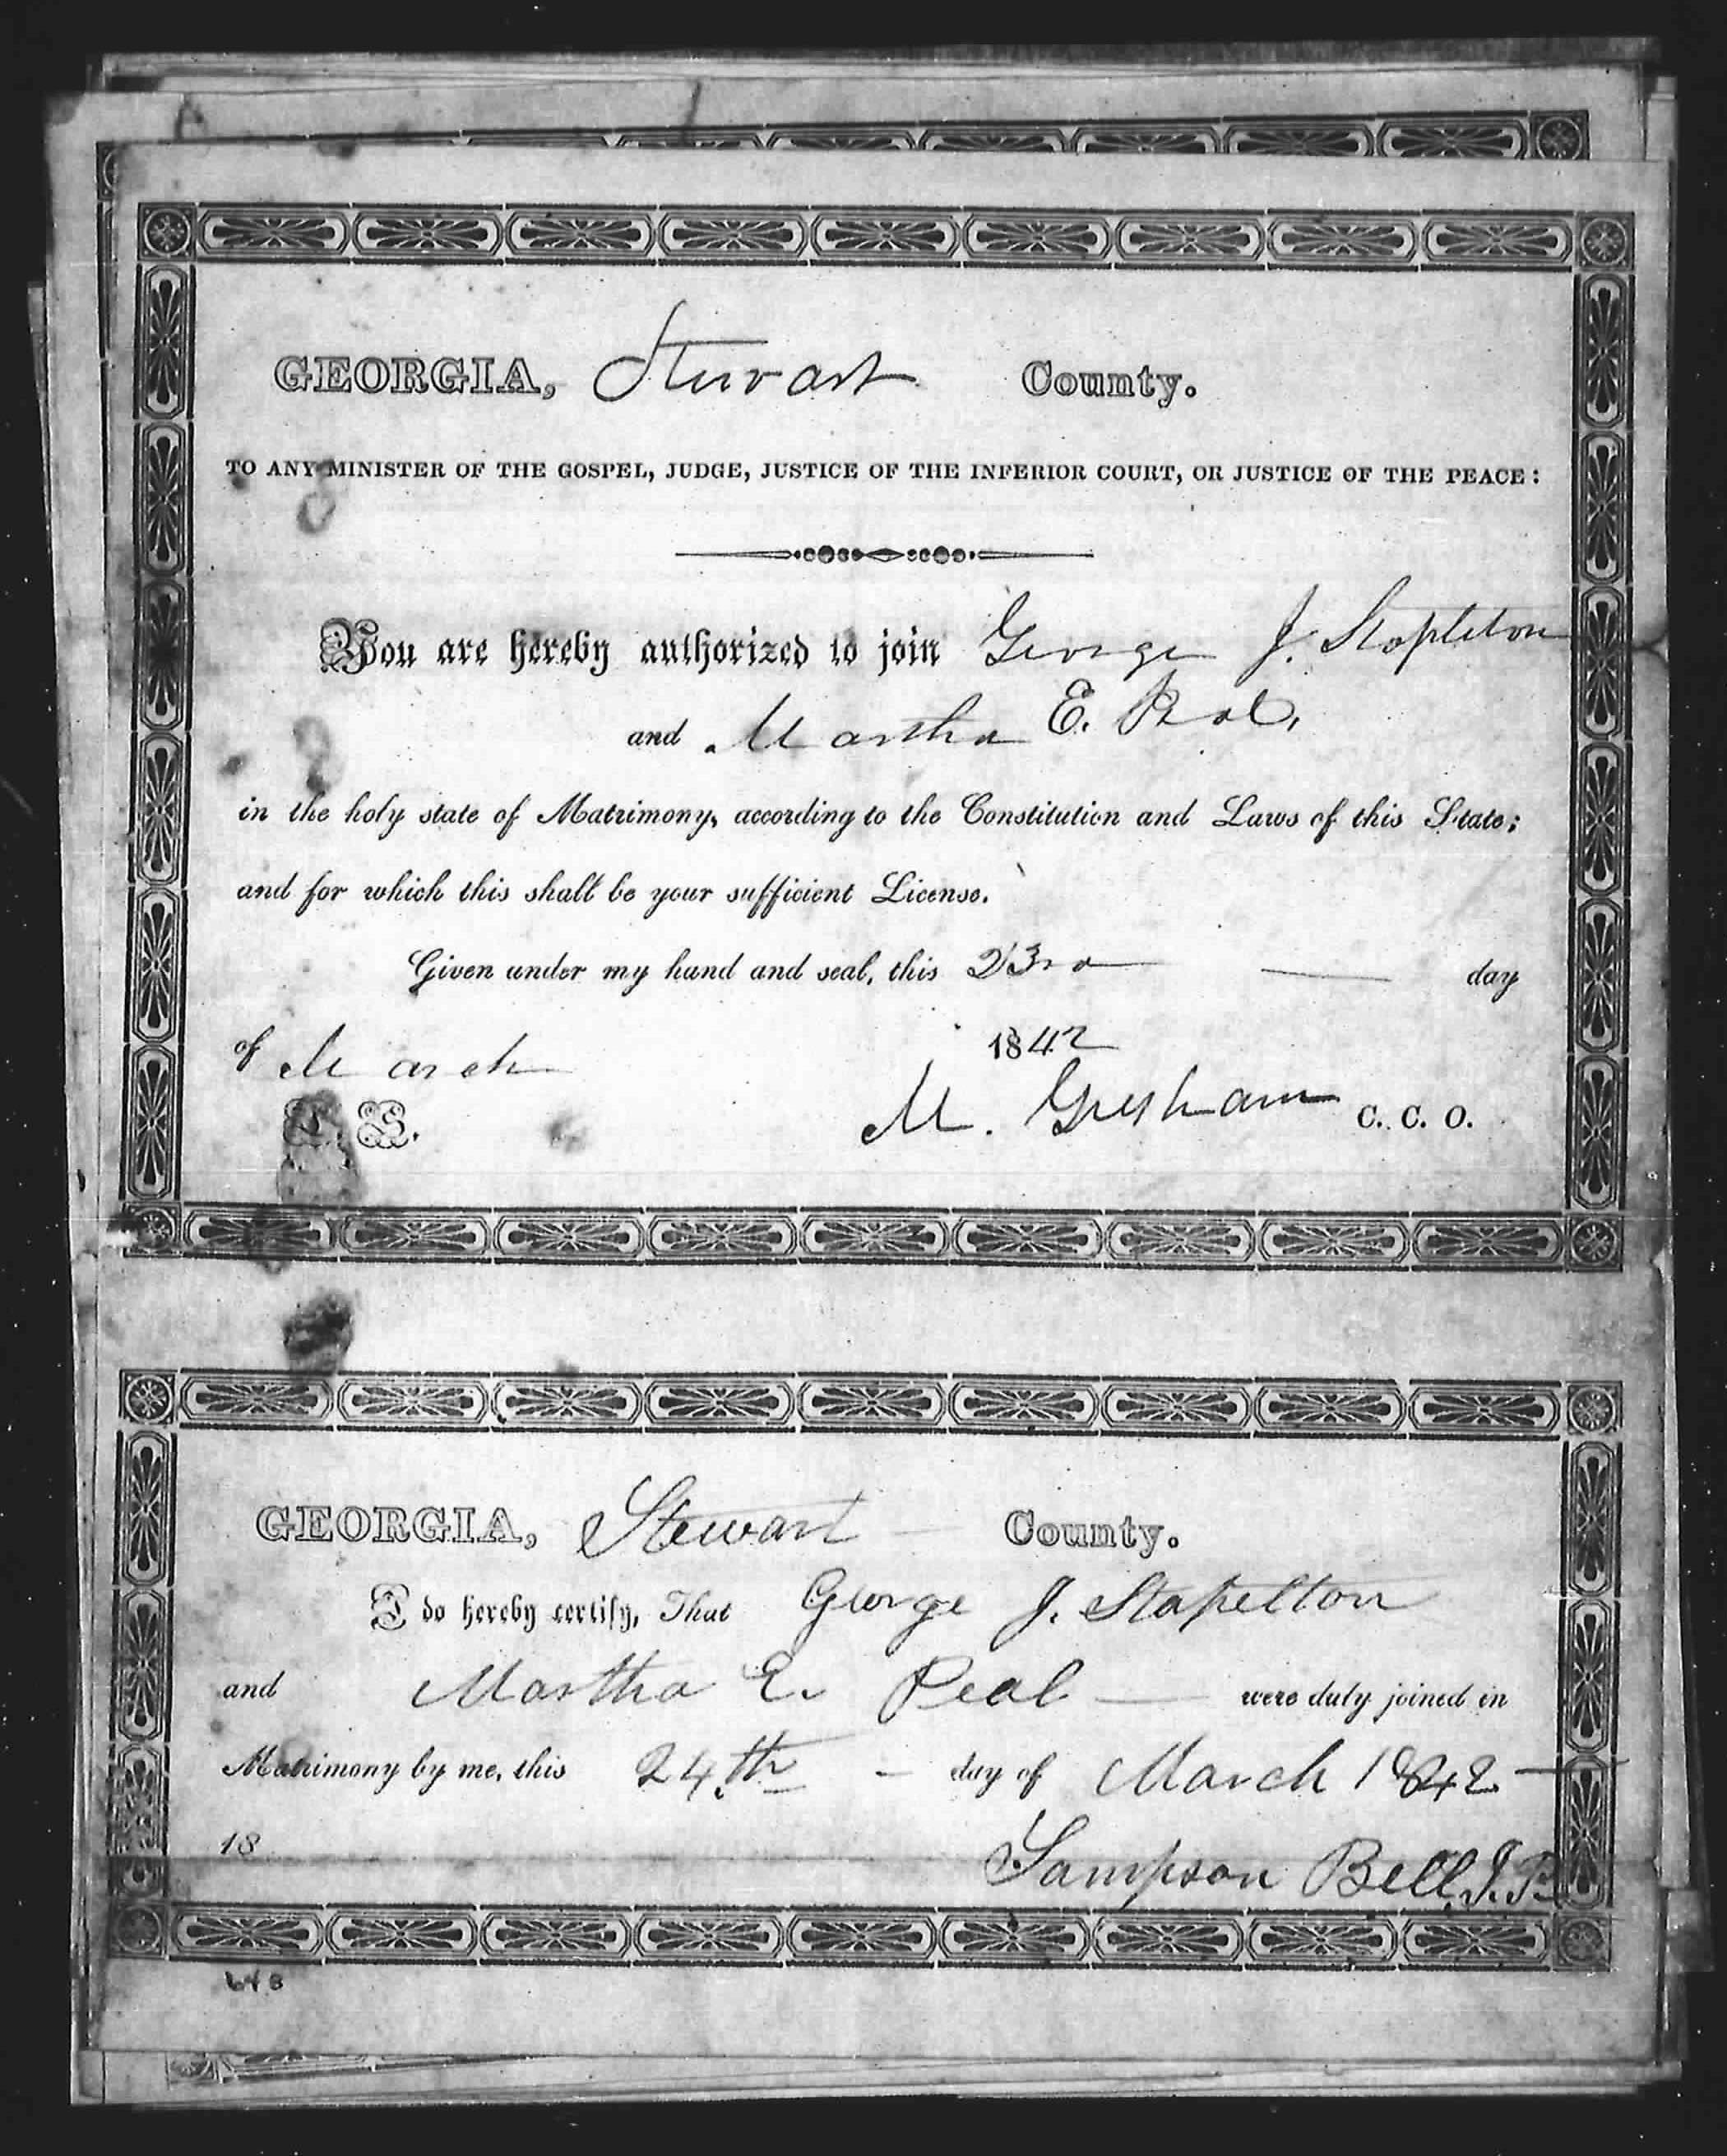 GEORGIA, Stewart County.
TO ANY MINISTER OF THE GOSPEL, JUDGE, JUSTICE OF THE INFERIOR COURT, OR JUSTICE OF THE PEACE:
You are hereby authorized to join George J. Stapleton
and Martha E. Peal,
in the holy state of Matrimony, according to the Constitution and Laws of this State;
and for which this shall be your sufficient License.
Given under my hand and seal, this 23rd day
of March 1842
L. S. M. Gresham C. C. O.
GEORGIA, Stewart County.
I do hereby certify, That George J. Stapelton
and Martha E. Peal were duly joined in
Matrimony by me, this 24th day of March 1842
18
Sampson Bell, J.P.
648